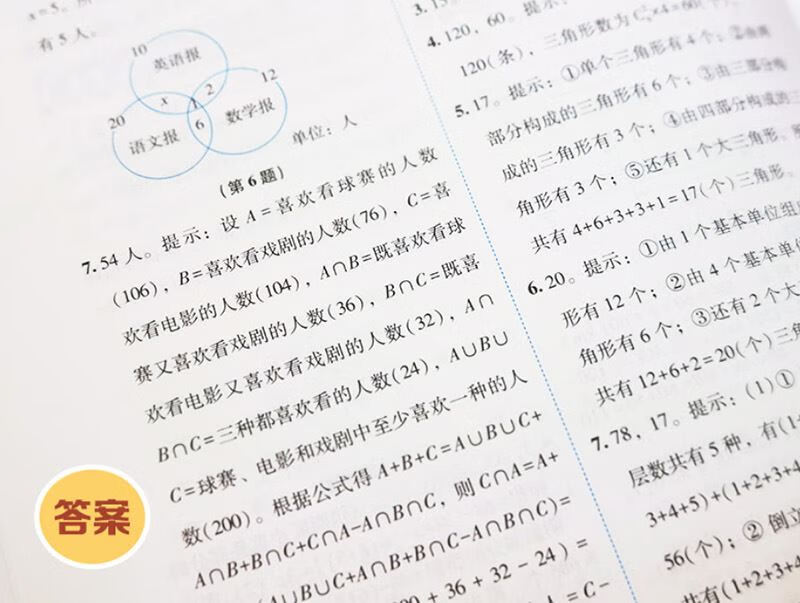 x=5。
有5人。
10
英语报
12
20
x
1
2
6
语文报
数学报
单位：人
(第6题)
7. 54人。提示：设A=喜欢看球赛的人数
(106)，B=喜欢看戏剧的人数(76)，C=喜
欢看电影的人数(104)，A∩B=既喜欢看球
赛又喜欢看戏剧的人数(36)，B∩C=既喜
欢看电影又喜欢看戏剧的人数(32)，A∩
B∩C=三种都喜欢看的人数(24)，A∪B∪
C=球赛、电影和戏剧中至少喜欢一种的人
数(200)。根据公式得A+B+C=A∪B∪C+
A∩B+B∩C+C∩A-A∩B∩C，则C∩A=A+
A∪B∪C+A∩B+B∩C-A∩B∩C)=
+ 36 + 32 - 24) =
3. 15。
4. 120，60。提示：
120(条)，三角形数为
5. 17。提示：①单个三角形有4个；②由两
部分构成的三角形有6个；③由三部分构
成的三角形有3个；④由四部分构成的三
角形有3个；⑤还有1个大三角形。
共有4+6+3+3+1=17(个)三角形。
6. 20。提示：①由1个基本单位组
形有12个；②由4个基本单
角形有6个；③还有2个大
共有12+6+2=20(个)三
7. 78，17。提示：(1)①
层数共有5种，有(1+
3+4+5)+(1+2+3+4
56(个)；②倒立
共有(1+2+3+
答案